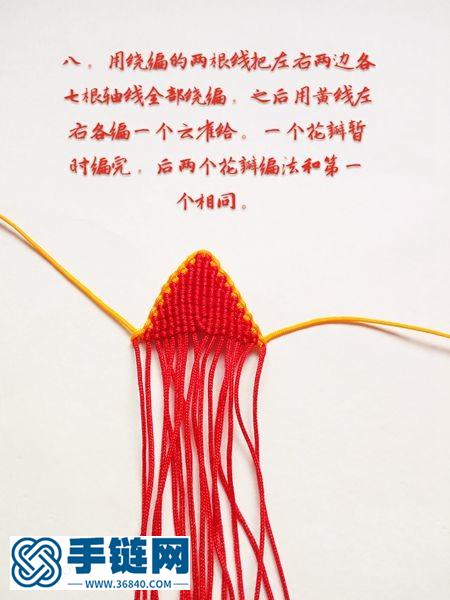 八，用绕编的两根线把左右两边各
七根轴线全部绕编，之后用黄线左
右各编一个云雀结。一个花瓣暂
时编完，后两个花瓣编法和第一
个相同。
手链网
WWW.36840.COM